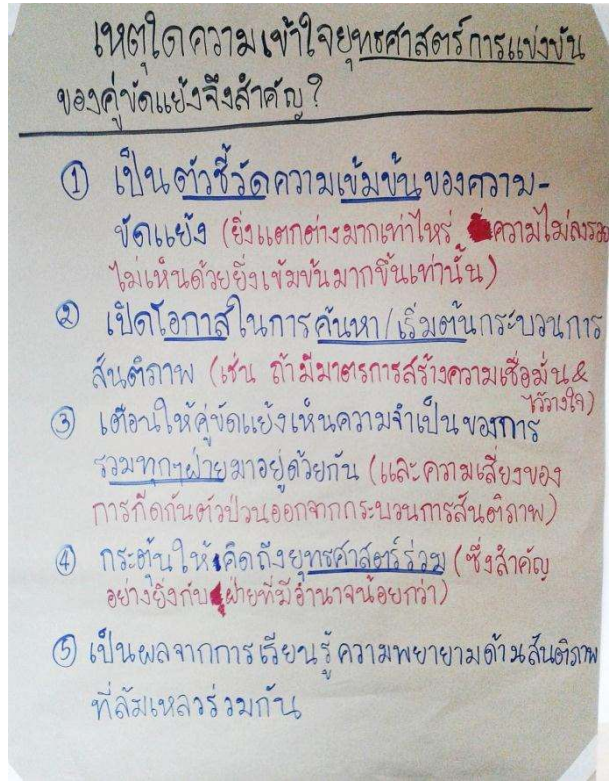 เหตุใดความเข้าใจยุทธศาสตร์การแข่งขัน
ของคู่ขัดแย้งจึงสำคัญ?
① เป็นตัวชี้วัดความเข้มข้นของความ-
ขัดแย้ง (ยิ่งแตกต่างมากเท่าไหร่ ความไม่ลงรอย
ไม่เห็นด้วยยิ่งเข้มข้นมากขึ้นเท่านั้น)
② เปิดโอกาสในการค้นหา/เริ่มต้นกระบวนการ
สันติภาพ (เช่น ถ้ามีมาตรการสร้างความเชื่อมั่น &
ไว้วางใจ)
③ เตือนให้คู่ขัดแย้งเห็นความจำเป็นของการ
รวมทุกๆฝ่ายมาอยู่ด้วยกัน (และความเสี่ยงของ
การกีดกันตัวป่วนออกจากกระบวนการสันติภาพ)
④ กระตุ้นให้คิดถึงยุทธศาสตร์ร่วม (ซึ่งสำคัญ
อย่างยิ่งกับฝ่ายที่มีอำนาจน้อยกว่า)
⑤ เป็นผลจากการเรียนรู้ความพยายามด้านสันติภาพ
ที่ล้มเหลวร่วมกัน